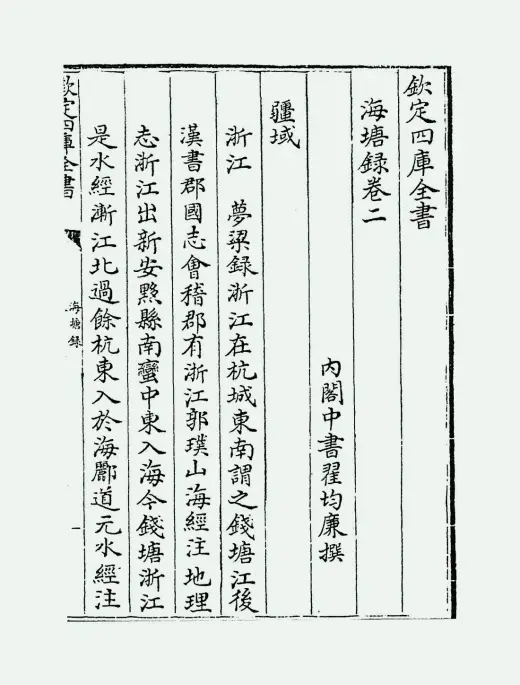 欽定四庫全書
海塘録卷二
内閣中書翟均廉撰
疆域
浙江　夢粱録浙江在杭城東南謂之錢塘江後
漢書郡國志會稽郡有浙江郭璞山海經注地理
志浙江出新安黟縣南蠻中東入海今錢塘浙江
是水經漸江北過餘杭東入於海酈道元水經注
欽定四庫全書
海塘録
一